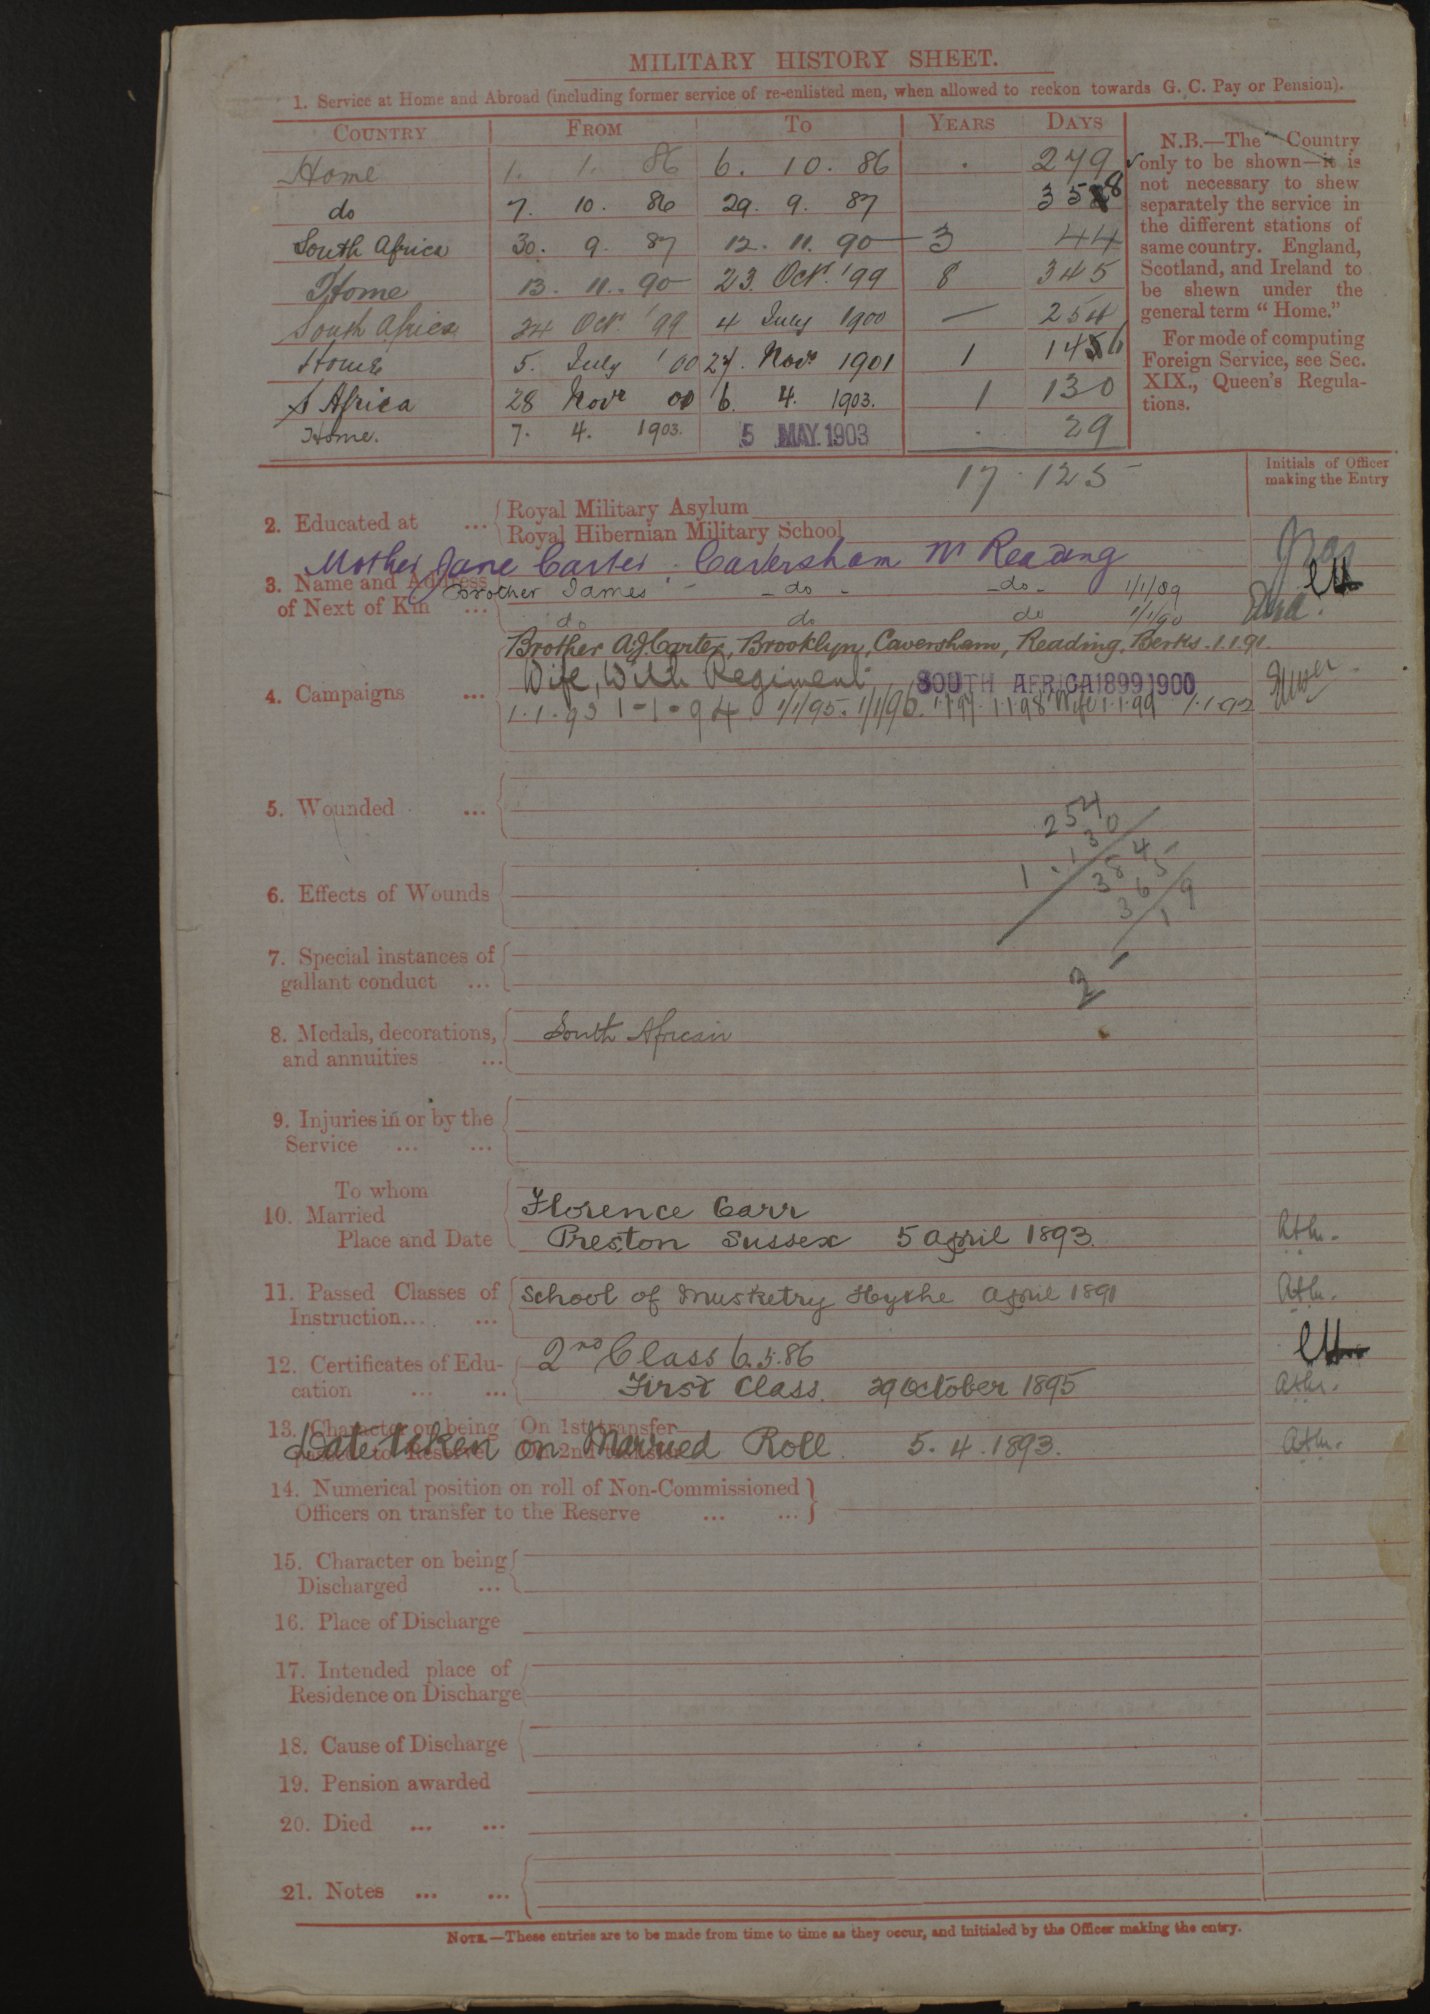 MILITARY HISTORY SHEET.
1. Service at Home and Abroad (including former service of re-enlisted men, when allowed to reckon towards G. C. Pay or Pension).
COUNTRY FROM TO YEARS DAYS
Home 1. 1. 86 6. 10. 86 . 279
do 7. 10. 86 29. 9. 87 358
South Africa 30. 9. 87 12. 11. 90 3 44
Home 13. 11. 90 23. Oct. '99 8 345
South Africa 24 Oct. '99 4 July 1900 — 254
Home 5. July '00 27. Novr 1901 1 146
S Africa 28 Novr 01 6. 4. 1903. 1 130
Home. 7. 4. 1903. 5 MAY. 1903 . 29
17. 125
N.B.—The Country
only to be shown—it is
not necessary to shew
separately the service in
the different stations of
same country. England,
Scotland, and Ireland to
be shewn under the
general term “Home.”
For mode of computing
Foreign Service, see Sec.
XIX., Queen's Regula-
tions.
Initials of Officer
making the Entry
2. Educated at ... Royal Military Asylum
Royal Hibernian Military School
Mother Jane Carter. Caversham Nr Reading
3. Name and Address
of Next of Kin ...
Brother James - do - - do - 1/1/89
do do do 1/1/90
Brother A.J. Carter, Brooklyn, Caversham, Reading, Berks. 1.1.91.
4. Campaigns ... Wife, With Regiment SOUTH AFRICA 1899 1900
1.1.93 1-1-94 1/1/95. 1/1/96. 1.1.97. 1.1.98 Wife 1.1.99 1.1.92
5. Wounded ...
254
1.130
384
365
19
6. Effects of Wounds
7. Special instances of
gallant conduct ...
8. Medals, decorations,
and annuities ...
South African
9. Injuries in or by the
Service ... ...
To whom
10. Married
Place and Date
Florence Carr
Preston Sussex 5 April 1893.
11. Passed Classes of
Instruction... ...
School of Musketry Hythe April 1891
12. Certificates of Edu-
cation ... ...
2nd Class 6.5.86
First Class. 29 October 1895
13. Character on being On 1st transfer
passed to Reserve On 2nd transfer
Date taken on Married Roll. 5. 4. 1893.
14. Numerical position on roll of Non-Commissioned
Officers on transfer to the Reserve ... ...
15. Character on being
Discharged ...
16. Place of Discharge
17. Intended place of
Residence on Discharge
18. Cause of Discharge
19. Pension awarded
20. Died ... ...
21. Notes ... ...
NOTE.—These entries are to be made from time to time as they occur, and initialed by the Officer making the entry.